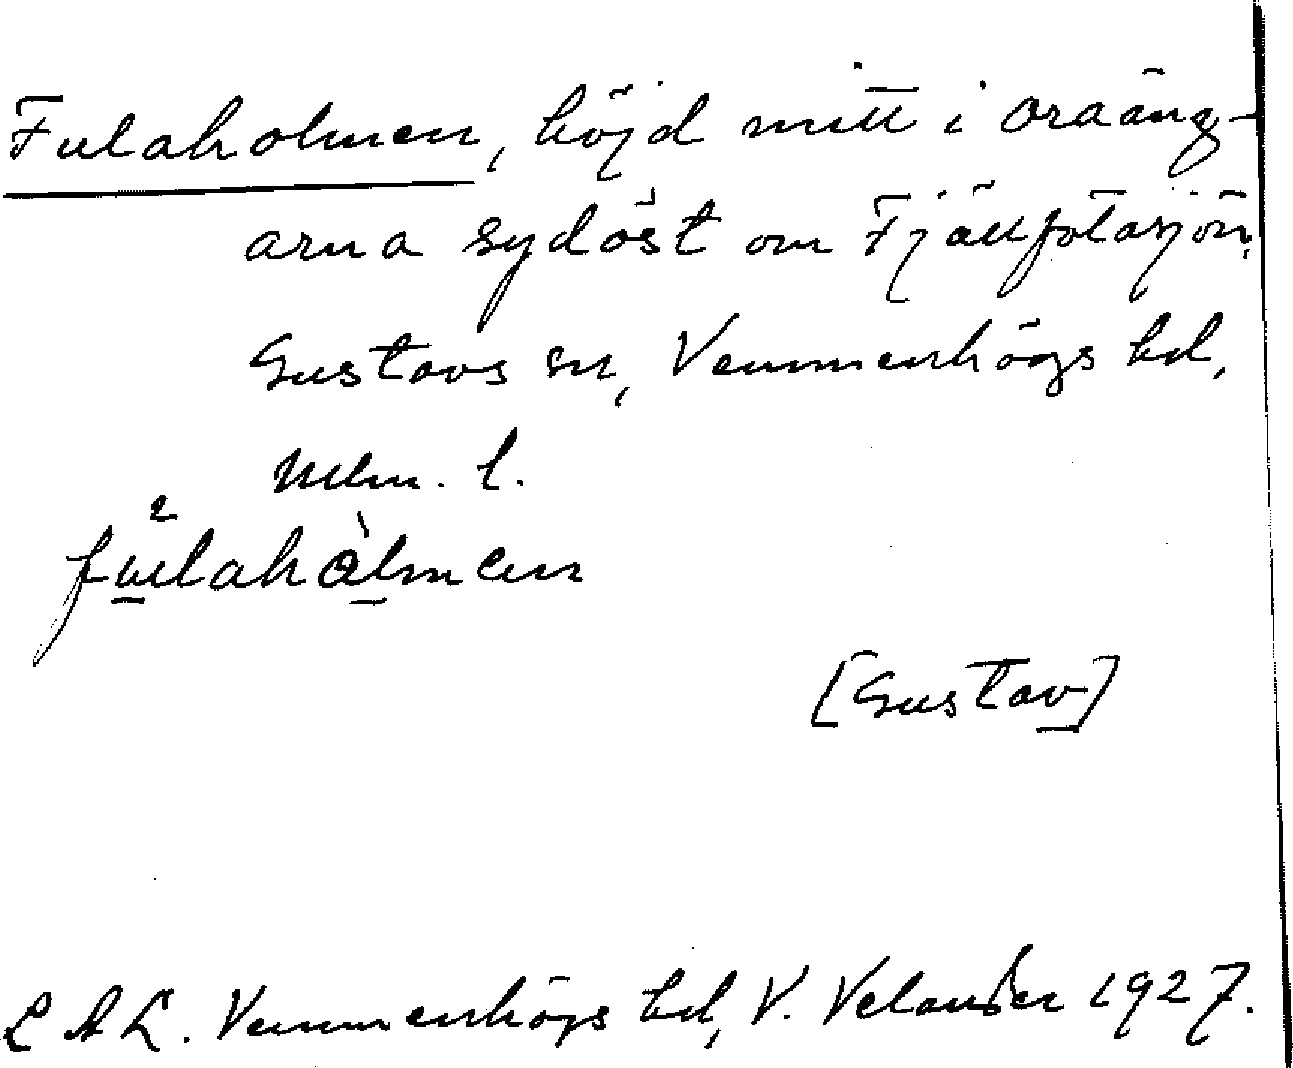 Fulaholmen, höjd mitt i oraäng-
arna sydöst om Fjällfotasjön,
Gustavs sn, Vemmenhögs hd,
Mlm. l.
fu̱lahålmen
[Gustav]
LAL. Vemmenhögs hd, V. Velander 1927.